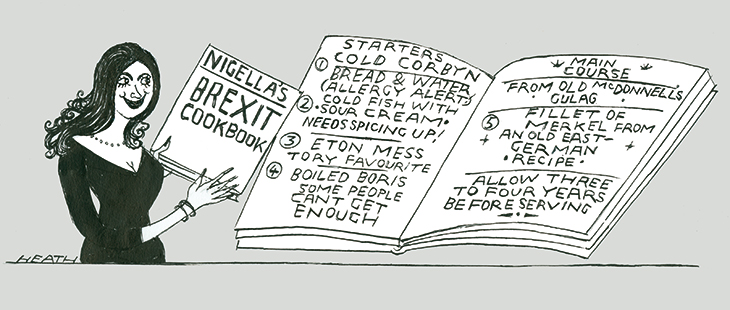 NIGELLA'S
BREXIT
COOKBOOK
STARTERS
① COLD CORBYN
BREAD & WATER
(ALLERGY ALERT)
② COLD FISH WITH
SOUR CREAM.
NEEDS SPICING UP!
③ ETON MESS
TORY FAVOURITE
④ BOILED BORIS
SOME PEOPLE
CANT GET
ENOUGH
MAIN
COURSE
FROM OLD McDONNELL'S
GULAG.
⑤ FILLET OF
MERKEL FROM
AN OLD EAST-
GERMAN
RECIPE.
ALLOW THREE
TO FOUR YEARS
BEFORE SERVING
HEATH